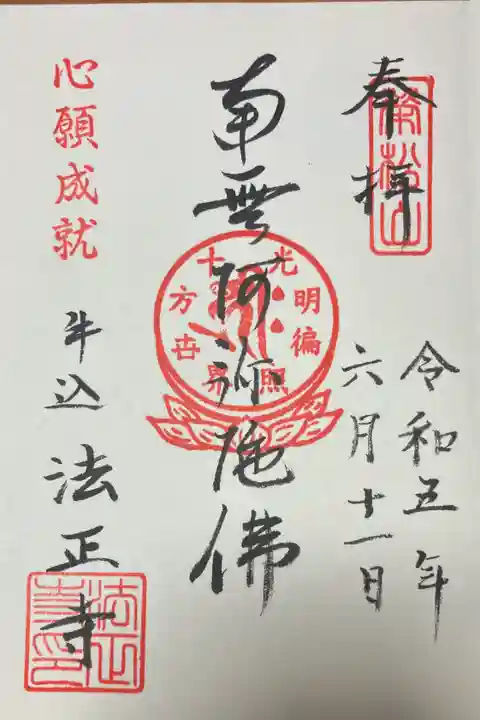 奉拝
榮松山
令和五年
六月十一日
南無阿弥陀佛
光明徧照
十方世界
心願成就
牛込
法正寺
法正寺印